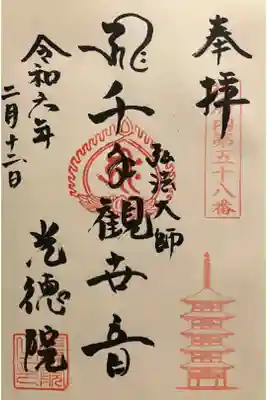 奉拝
第五十八番
弘法大師
千手観世音
令和六年
二月十二日
光徳院